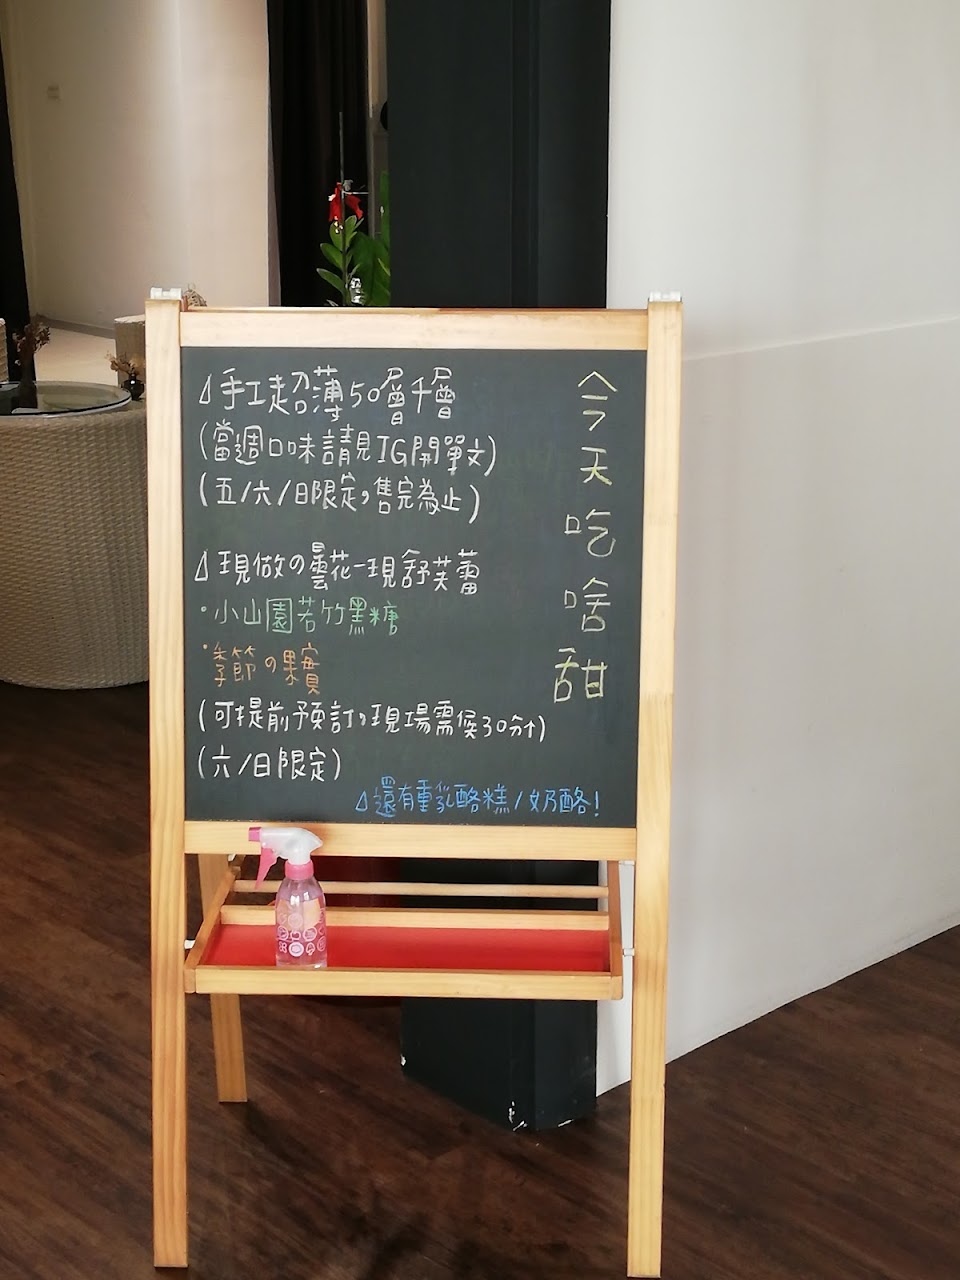 今天吃啥甜
△手工超薄50層千層
(當週口味請見IG開單文)
(五/六/日限定,售完為止)
△現做の曇花一現舒芙蕾
·小山園若竹黑糖
·季節の果實
(可提前預訂,現場需候30分↑)
(六/日限定)
△還有重乳酪糕/奶酪!